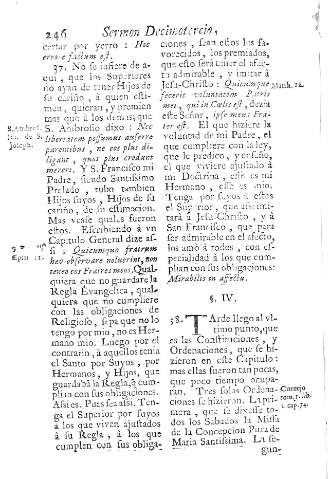 246 Sermon Decimotercio,
certar por yerro: Hoc
errore factum est.
37. No se infiere de a-
qui, que los Superiores
no ayan de tener Hijos de
su cariño, à quien esti-
men, quieran, y premien
mas que à los demás; que
S. Ambrosio dixo: Nec
libertatem possumus auferre
parentibus, ne eos plus di-
ligant, quos plus credunt
mereri. Y S. Francisco mi
Padre, siendo Santissimo
Prelado, tubo tambien
Hijos suyos, Hijos de su
cariño, de su estimacion.
Mas vease quales fueron
estos. Escribiendo à vn
Capitulo General dize as-
si: Quicumque fratrum
hec observare noluerint, non
teneo eos Fratres meos. Qual-
quiera que no guardare la
Regla Evangelica, qual-
quiera que no cumpliere
con las obligaciones de
Religioso, sepa que no lo
tengo por mio, no es Her-
mano mio. Luego por el
contrario, à aquellos tenia
el Santo por Suyos, por
Hermanos, y Hijos, que
guardaba la Regla, è cum-
plia con sus obligaciones.
Assi es. Pues sea assi. Ten-
ga el Superior por suyos
à los que viven ajustados
à su Regla, à los que
cumplen con sus obliga-
S. Ambros.
Joseph.
Epist. 11.
ciones, sean estos los fa-
vorecidos, los premiados,
que esto será tener el afec-
to admirable, y imitar à
Jesu-Christo: Quicumque
fecerit voluntatem Patris
mei, qui in Cœlis est, dezia
este Señor, ipse meus Fra-
ter est. El que hiziere la
voluntad de mi Padre, el
que cumpliere con la ley,
que le predico, y enseño,
el que viviere ajustado à
mi Doctrina, esse es mi
Hermano, esse es mio.
Tenga por suyos à estos
el Superior, que assi imi-
tará à Jesu-Christo, y à
San Francisco, que para
ser admirable en el afecto,
los amó à todos, con es-
pecialidad à los que cum-
plian con sus obligaciones:
Mirabilis in affectu.
Matth. 12.
§. IV.
38. Tarde llego al vl-
timo punto, que
es las Constituciones, y
Ordenaciones, que se hi-
zieron en este Capitulo:
mas ellas fueron tan pocas,
que poco tiempo ocupa-
rán. Tres solas Ordena-
ciones se hizieron. La pri-
mera, que se dixesse to-
dos los Sabados la Missa
de la Concepcion Pura de
Maria Santissima. La se-
gun-
Cornejo
tom. 3. lib.
1. cap. 74.